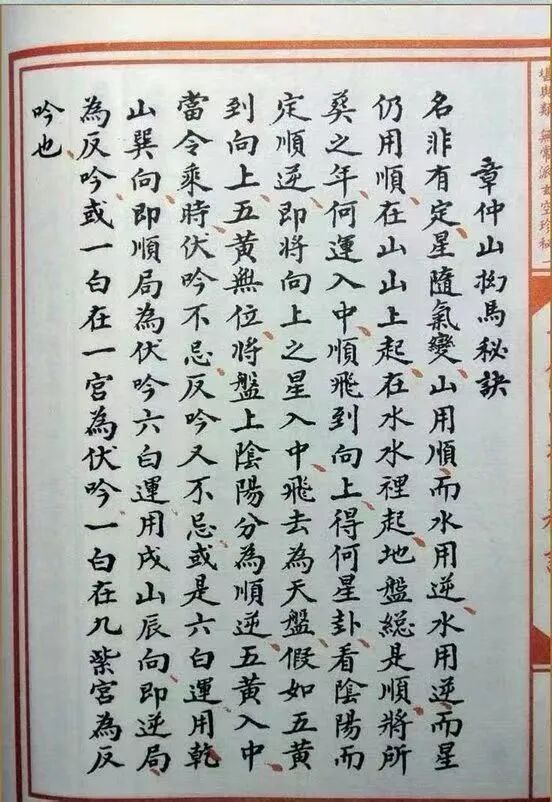 無常派玄空珍秘
章仲山抝馬秘訣
名非有定星隨氣變山用順而水用逆水用逆而星
仍用順在山山上起在水水裡起地盤總是順將所
葬之年何運入中順飛到向上得何星卦看陰陽而
定順逆即將向上之星入中飛去為天盤假如五黃
到向上五黃無位將盤上陰陽分為順逆五黃入中
當令乘時伏吟不忌反吟又不忌或是六白運用乾
山巽向即順局為伏吟六白運用戌山辰向即逆局
為反吟或一白在一宮為伏吟一白在九紫宮為反
吟也